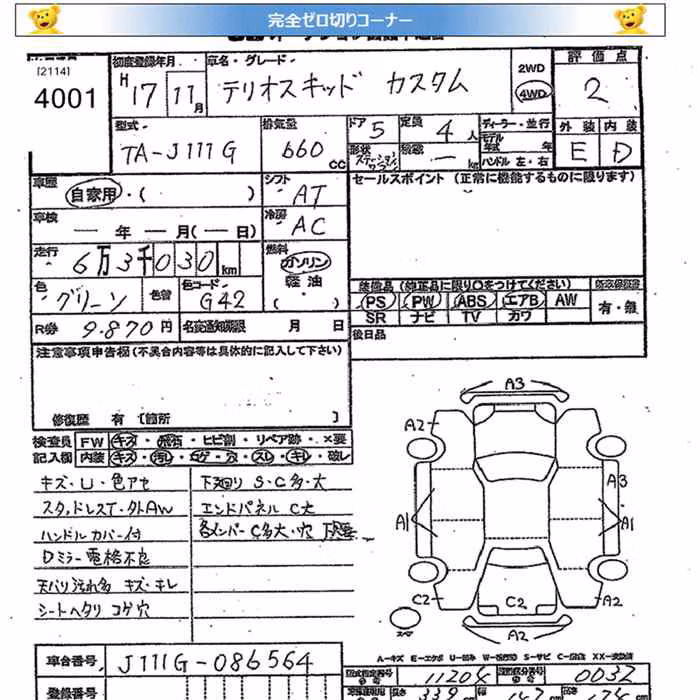 完全ゼロ切りコーナー
[2114]
4001
初度登録年月
H17 11月
車名・グレード
テリオスキッド カスタム
2WD
4WD
評価点
2
型式
TA-J111G
排気量
660 cc
ドア 5
定員 4人
形状
積載 — kg
ディーラー・並行
モデル年式 年
ハンドル 左・右
外装 内装
E D
車歴
自家用・( )
シフト
AT
セールスポイント (正常に機能するものに限ります)
車検
— 年 — 月(— 日)
冷房
AC
走行
6万3千030km
燃料
ガソリン
軽油
( )
色
グリーン
色替
色コード
G42
装備品 (純正品に限り○をつけてください)
PS PW ABS エアB AW
SR ナビ TV カワ
有・無
R券 9.870円
名変通知期限 月 日
後日品
注意事項申告欄(不具合内容等は具体的に記入して下さい)
修復歴 有 [箇所 ]
検査員 FW キズ・飛石・ヒビ割・リペア跡・×要
記入欄 内装 キズ・汚れ・コゲ・穴・スレ・キレ・破レ
キズ・U・色アセ
スタッドレスT・外AW
ハンドルカバー付
Dミラー電格不良
天バリ汚れ多 キズ・キレ
シートヘタリ コゲ穴
下廻り S・C多・大
エンドパネル C大
各メンバーC多大・穴
A3
A2
A3
A1
A1
C2
C2
A2
スペア
A2
A-キズ E-エクボ U-凹み W-板金跡 S-サビ C-腐食 XX-交換済
車台番号 J111G-086564
型式指定番号 11204
類別区分番号 0032
登録番号
長さ 339 cm